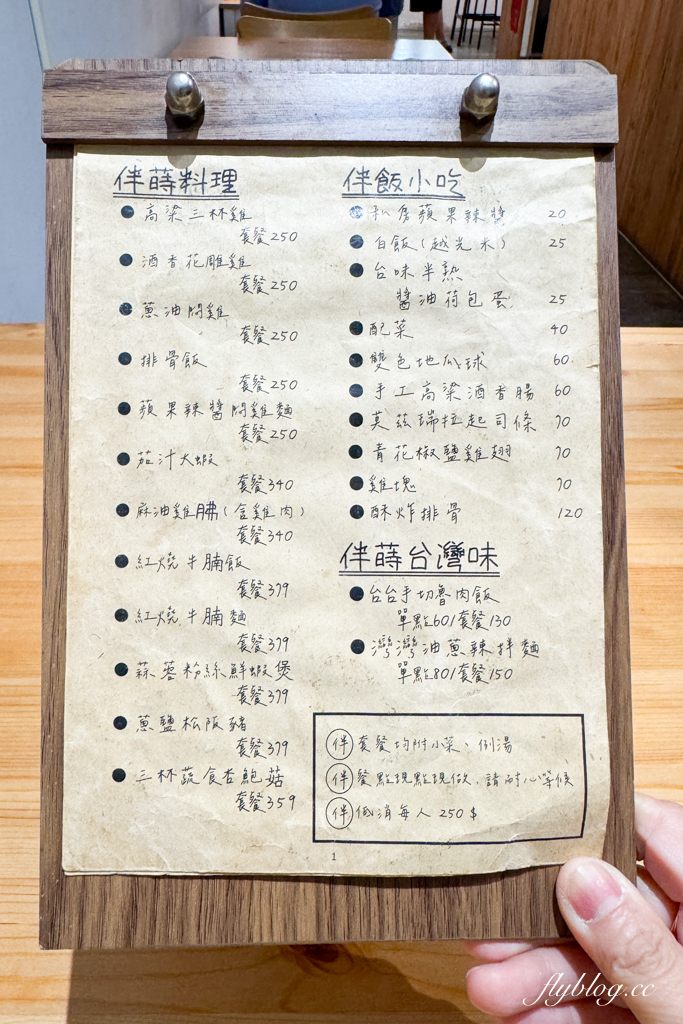 伴蒔料理
高梁三杯雞
套餐250
酒香花雕雞
套餐250
蔥油悶雞
套餐250
排骨飯
套餐250
蘋果辣醬悶雞麵
套餐250
茄汁大蝦
套餐340
麻油雞腿(含雞肉)
套餐340
紅燒牛腩飯
套餐379
紅燒牛腩麵
套餐379
蒜蓉粉絲鮮蝦煲
套餐379
蔥鹽松阪豬
套餐379
三杯蔬食杏鮑菇
套餐359
伴飯小吃
私房蘋果辣醬 20
白飯(越光米) 25
台味半熟
醬油荷包蛋 25
配菜 40
雙色地瓜球 60
手工高梁酒香腸 60
莫茲瑞拉起司條 70
青花椒鹽雞翅 70
雞塊 70
酥炸排骨 120
伴蒔台灣味
台台手切魯肉飯
單點60/套餐130
灣灣油蔥辣拌麵
單點80/套餐150
伴 套餐均附小菜、例湯
伴 餐點現點現做，請耐心等候
伴 低消每人250$
1
flyblog.cc